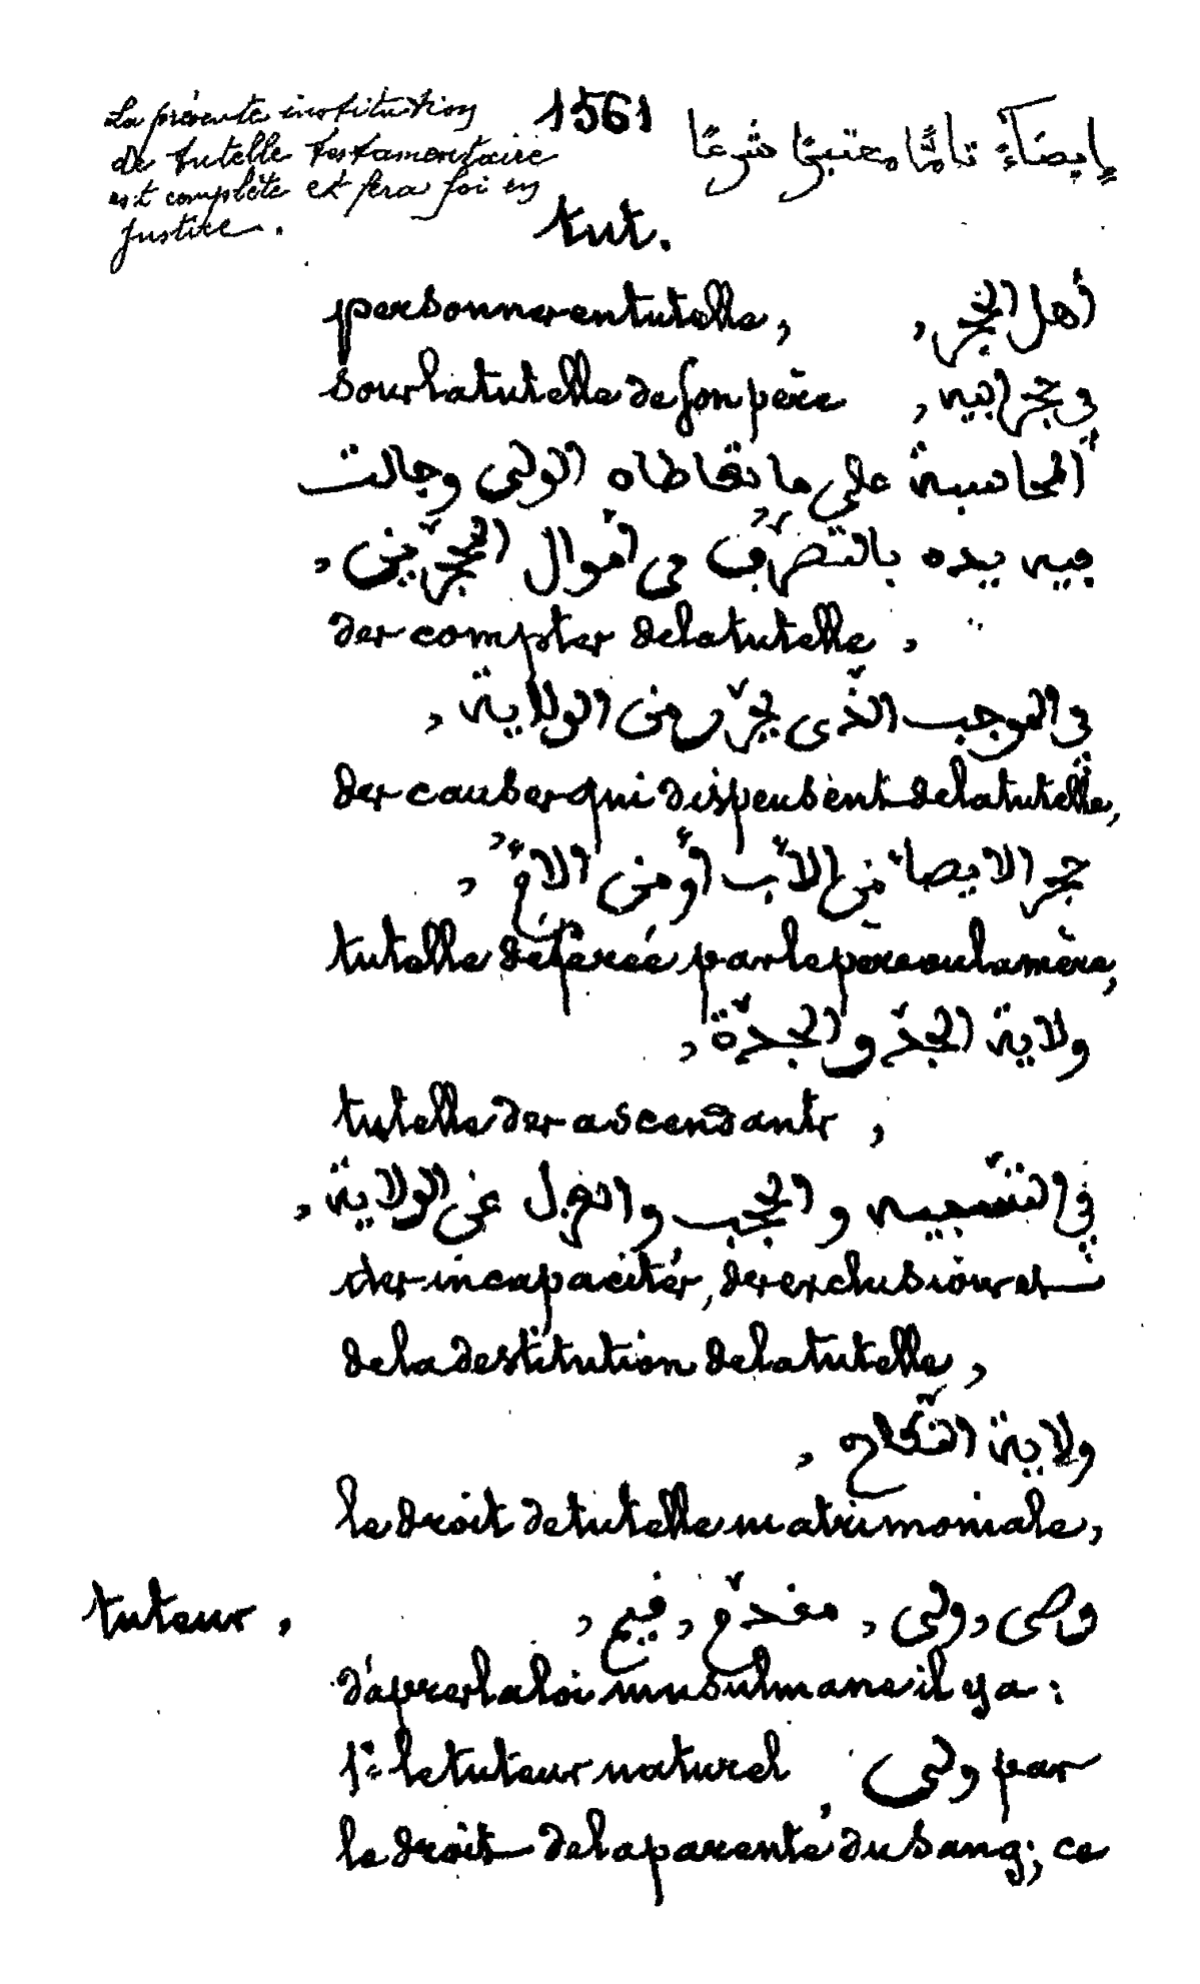 1561
La présente institution
de tutelle testamentaire
est complète et fera foi en
justice.
إيصاءً تامًّا معتبرًا شرعًا
tut.
personnes en tutelle, أهل الحجر,
sous la tutelle de son père وحجر ابيه,
المحاسبة على ما تعاطاه الولي وجالت
فيه يده بالتصرّف في أموال المحجّرين,
des comptes de la tutelle,
في الموجب الذّي يحرّر من الولاية,
des causes qui dispensent de la tutelle,
حجر الايصاء من الأب أو من الامّ,
tutelle déférée par le père ou la mère,
ولاية الجدّ والجدّة,
tutelle des ascendants,
في التسبيه والحجب والعزل عن الولاية,
des incapacités, des exclusions et
de la destitution de la tutelle,
ولاية النّكاح,
le droit de tutelle matrimoniale,
tuteur, وصى, ولى, مقدّم, قيم,
d'après la loi musulmane il y a:
1º: le tuteur naturel ولى par
le droit de la parenté du sang; ce